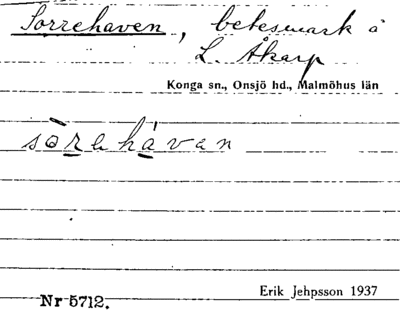 Sorrehaven, betesmark å
L. Åkarp
Konga sn., Onsjö hd., Malmöhus län
sòrehávan
Erik Jehpsson 1937
Nr 5712.